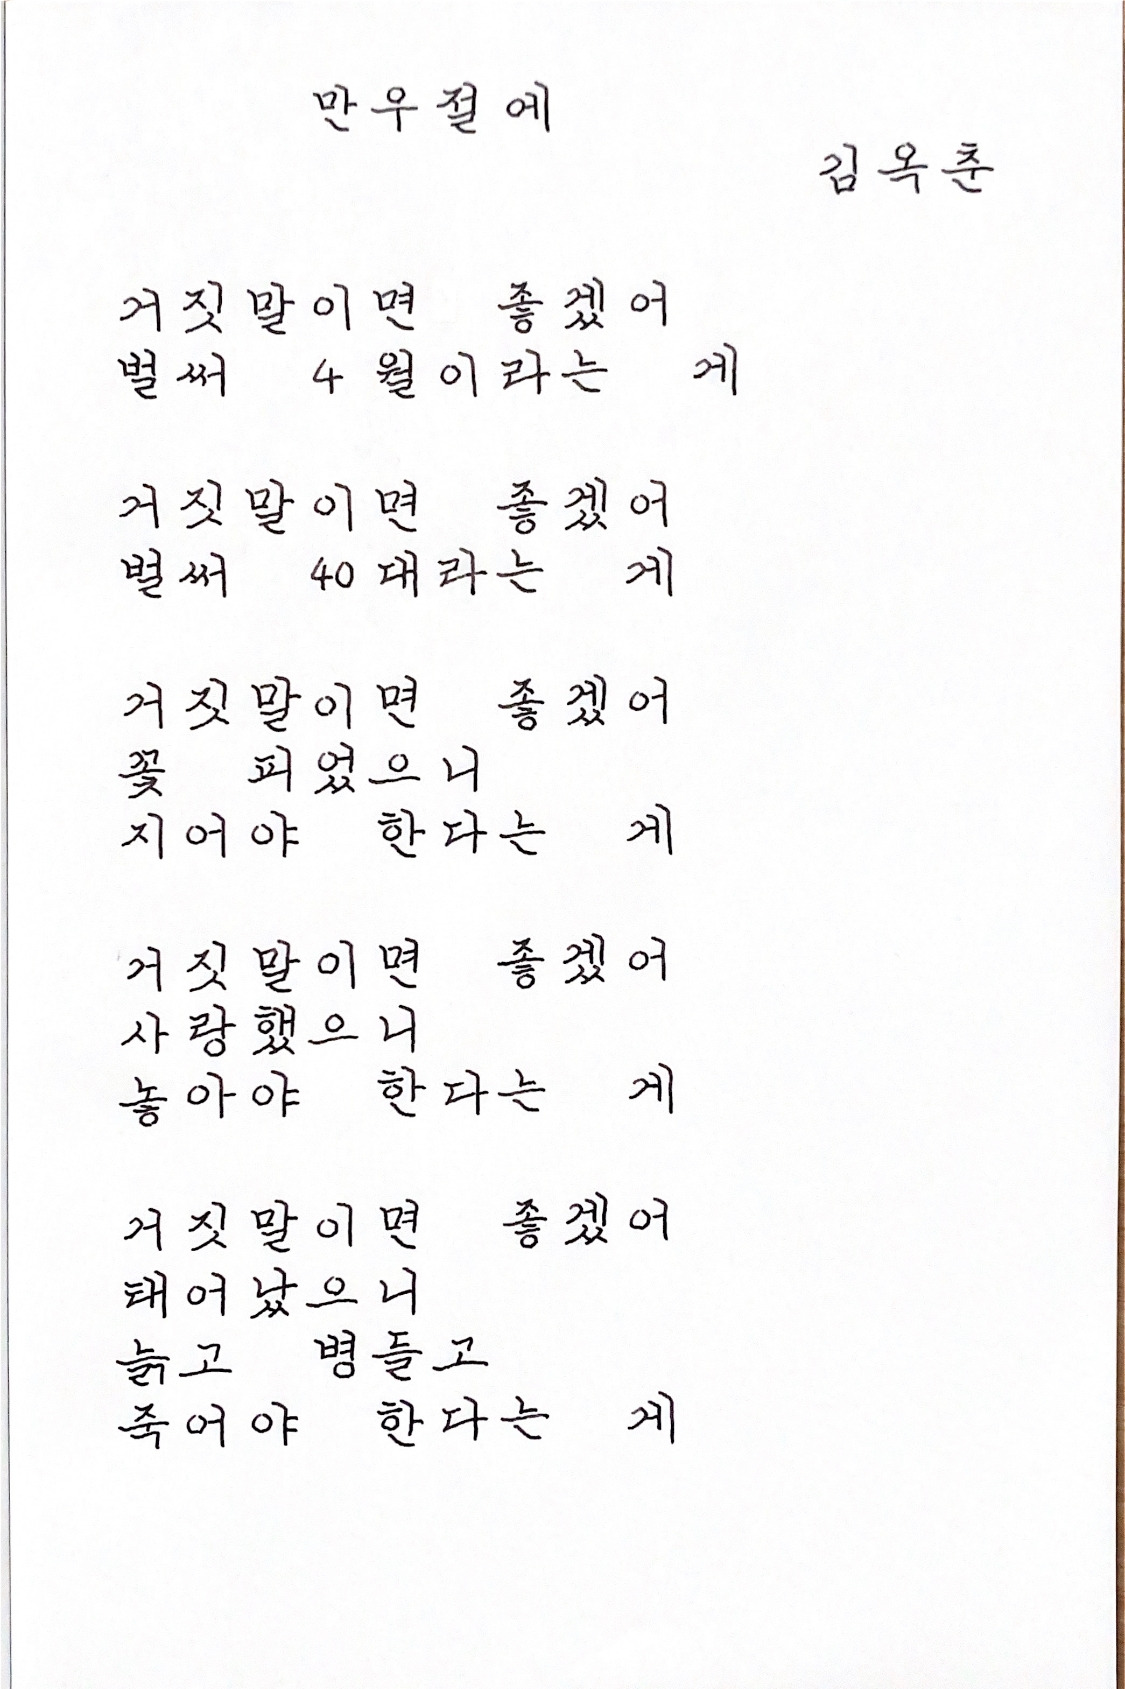 만우절에
김옥춘
거짓말이면 좋겠어
벌써 4월이라는 게
거짓말이면 좋겠어
벌써 40대라는 게
거짓말이면 좋겠어
꽃 피었으니
지어야 한다는 게
거짓말이면 좋겠어
사랑했으니
놓아야 한다는 게
거짓말이면 좋겠어
태어났으니
늙고 병들고
죽어야 한다는 게